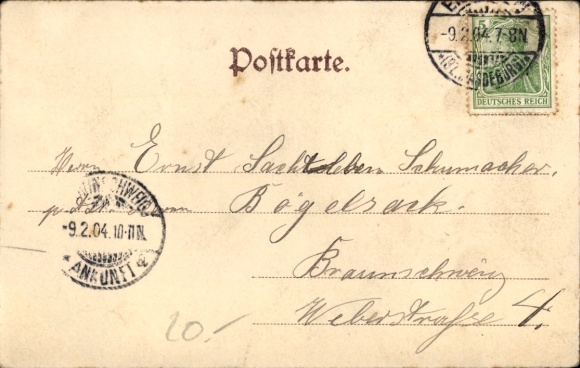 -9.2.04.7-8N
(BZ. MAGDEBURG)
5
DEUTSCHES REICH
Postkarte.
Herrn Ernst Sachtleben Schumacher.
Bögelsack.
BRAUNSCHWEIG
-9.2.04.10-11N.
ANKUNFT
Braunschweig
Weberstraße 4.
20.-